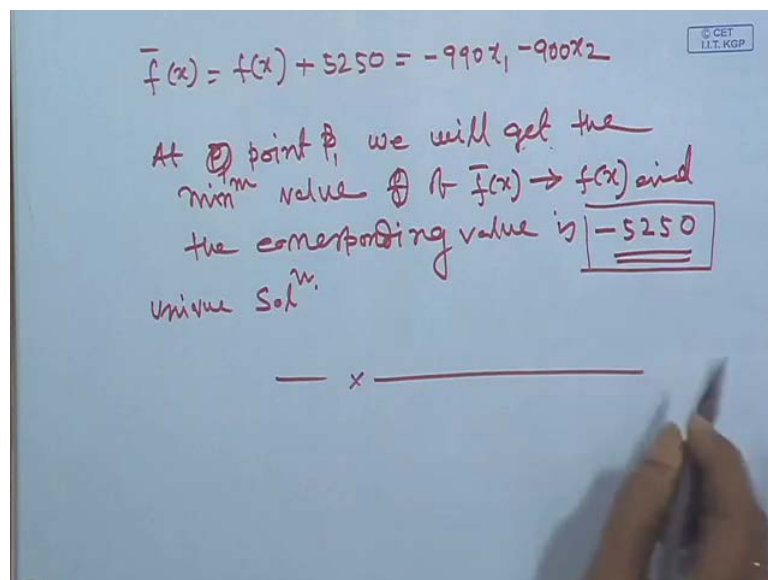 © CET
I.I.T. KGP
f̄(x) = f(x) + 5250 = -990x₁ -900x2
At point P₁ we will get the
minᵐ value of f̄(x) → f(x) and
the corresponding value is -5250
unique Solⁿ.